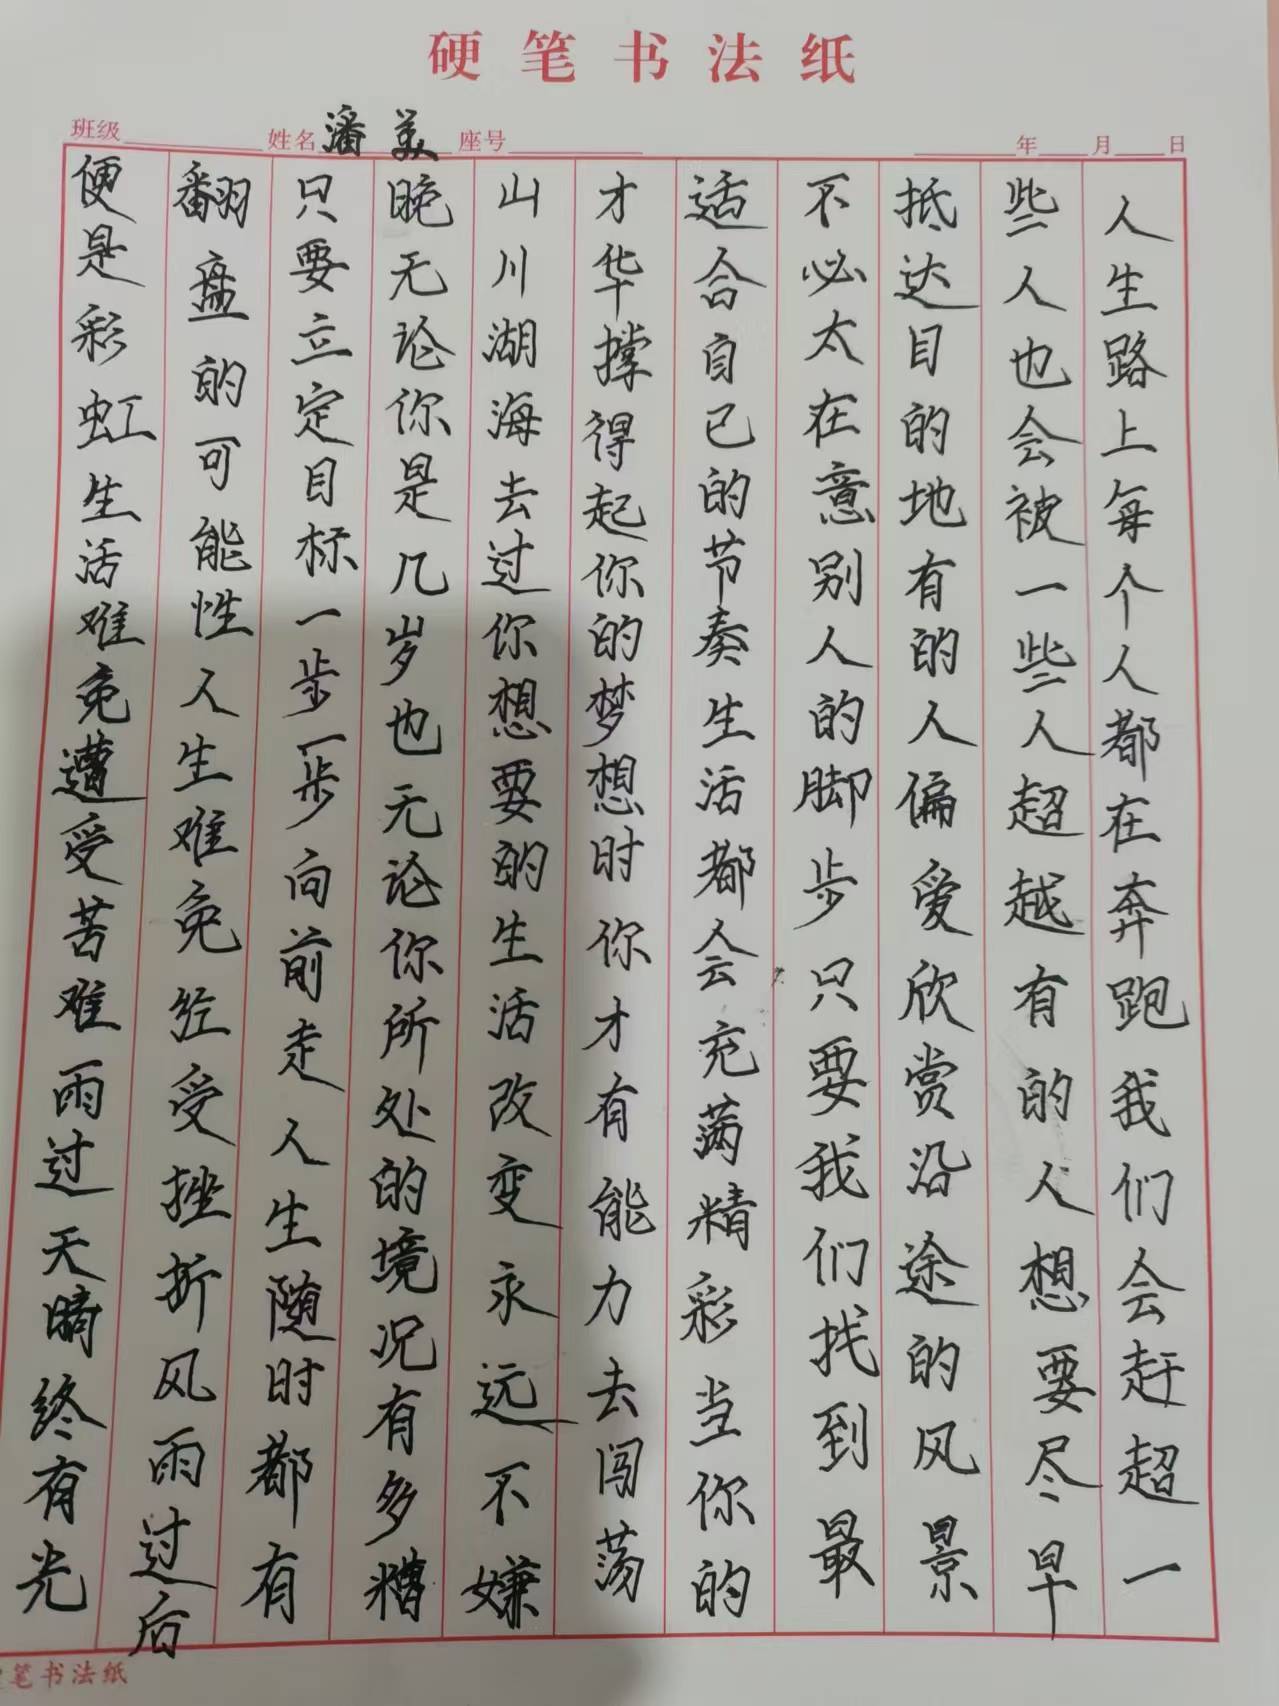 硬笔书法纸
班级 姓名 潘美 座号 年 月 日
人生路上每个人都在奔跑我们会赶超一
些人也会被一些人超越有的人想要尽早
抵达目的地有的人偏爱欣赏沿途的风景
不必太在意别人的脚步只要我们找到最
适合自己的节奏生活都会充满精彩当你的
才华撑得起你的梦想时你才有能力去闯荡
山川湖海去过你想要的生活改变永远不嫌
晚无论你是几岁也无论你所处的境况有多糟
只要立定目标一步一步向前走人生随时都有
翻盘的可能性人生难免经受挫折风雨过后
便是彩虹生活难免遭受苦难雨过天晴终有光
笔书法纸